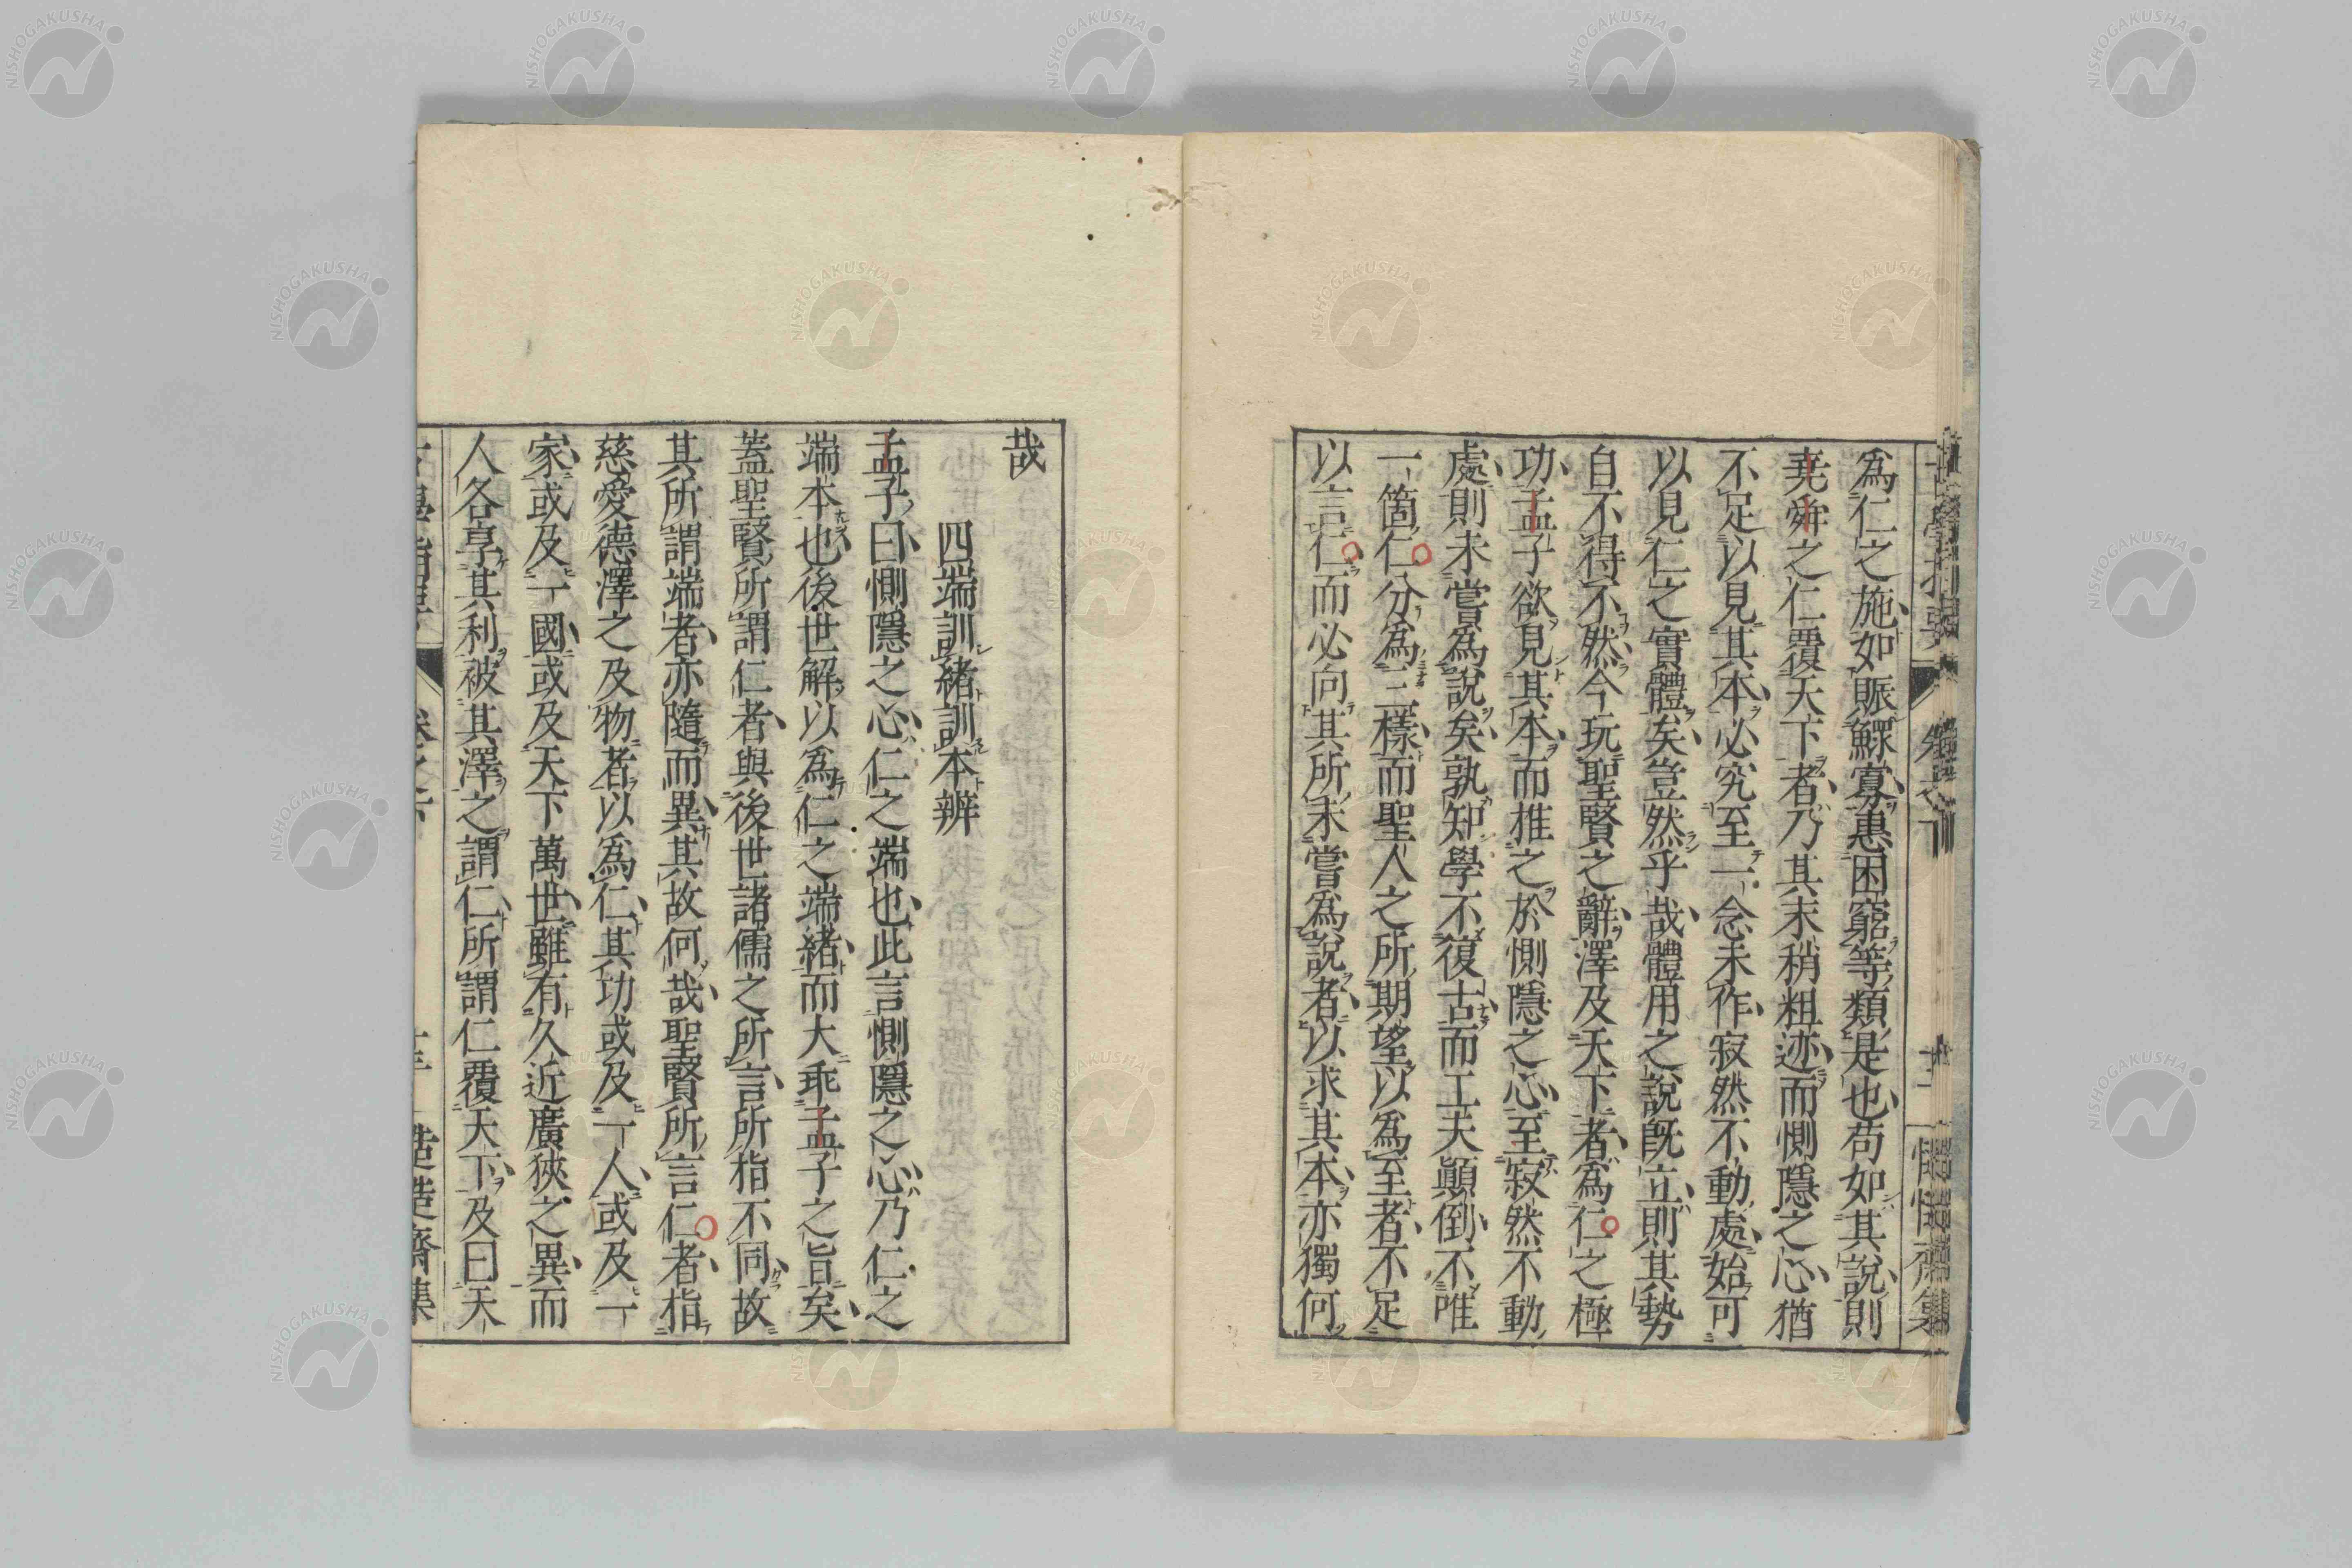 爲仁之施如賑鰥寡惠困窮等類是也苟如其說則
堯舜之仁覆天下者乃其末稍粗迹而惻隱之心猶
不足以見其本必究至一念未作寂然不動處始可
以見仁之實體矣豈然乎哉體用之說既立則其勢
自不得不然今玩聖賢之辭澤及天下者爲仁之極
功孟子欲見其本而推之於惻隱之心至寂然不動
處則未嘗爲說矣孰知學不復古而工夫顚倒不唯
一箇仁分爲三樣而聖人之所期望以爲至者不足
以言仁而必向其所未嘗爲說者以求其本亦獨何
哉
四端訓緒訓本辨
孟子曰惻隱之心仁之端也此言惻隱之心乃仁之
端本也後世解以爲仁之端緒而大乖孟子之旨矣
蓋聖賢所謂仁者與後世諸儒之所言所指不同故
其所謂端者亦隨而異其故何哉聖賢所言仁者指
慈愛德澤之及物者以爲仁其功或及一人或及一
家或及一國或及天下萬世雖有久近廣狹之異而
人各享其利被其澤之謂仁所謂仁覆天下及曰天